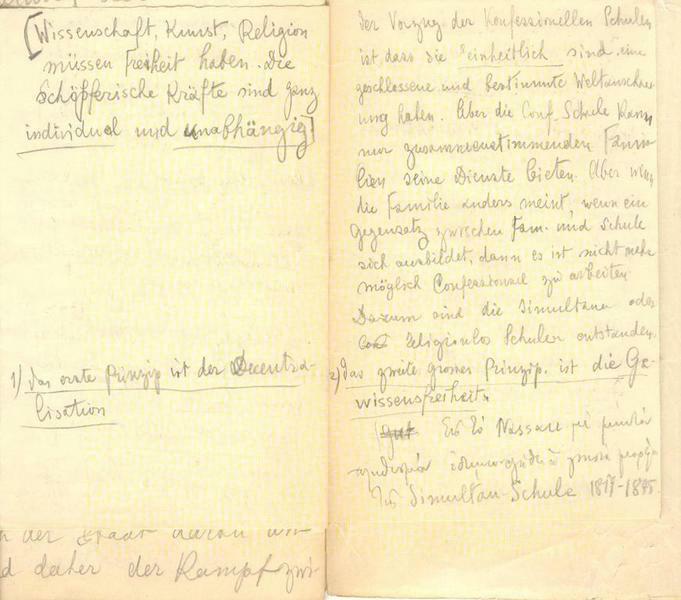 [Wissenschaft, Kunst, Religion
müssen Freiheit haben. Die
Schöpferische Kräfte sind ganz
individual und unabhängig]
1) das erste Prinzip ist der Decentra-
lisation
n der Staat daran
d daher der Kampf zwi-
Der Vorzug der Konfessionellen Schulen
ist, dass sie einheitlich sind, eine
geschlossene und bestimmte Weltanschau
ung haben. Aber die Conf. Schule kann
nur zusammenstimmenden Fami-
lien seine Dienste bieten. Aber wenn
die Familie anders meint, wenn ein
Gegensatz zwischen Fam. und Schule
sich ausbildet, dann es ist nicht mehr
möglich Confessionnel zu arbeiten
Darum sind die Simultane oder
religionlos Schulen entstanden.
2) das zweite grosses Prinzip. ist die Ge-
wissensfreiheit.
Nassau
Simultan-Schule 1817-1845